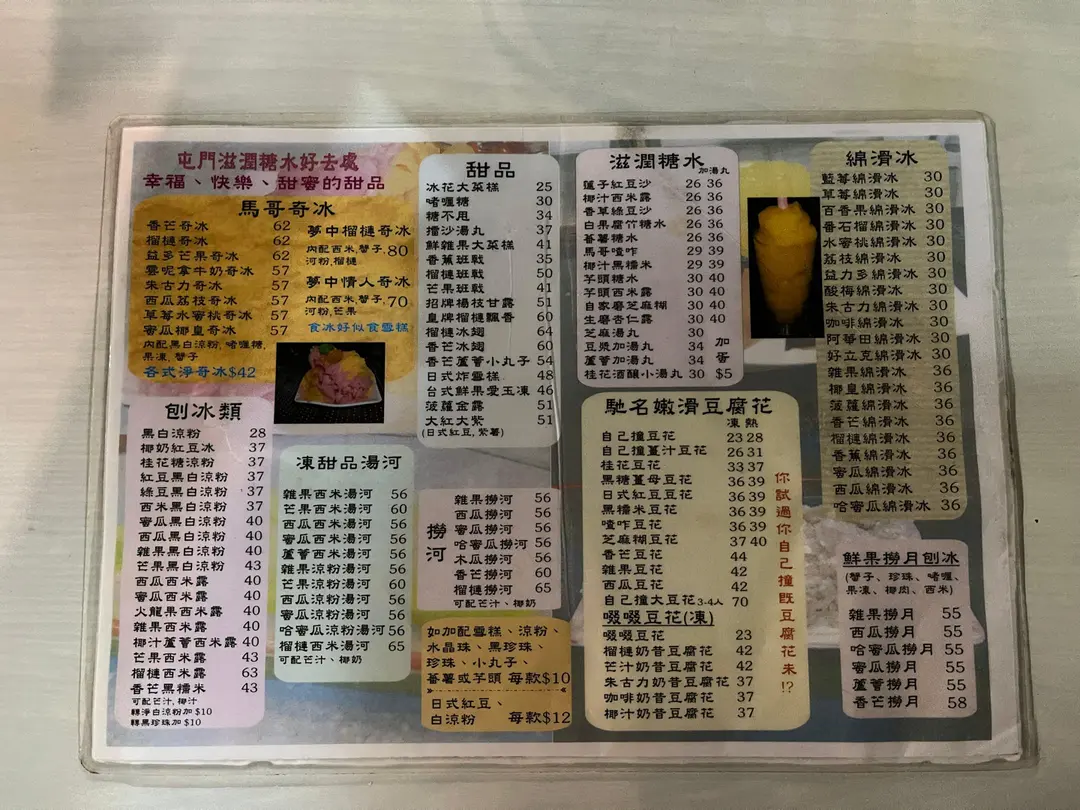 屯門滋潤糖水好去處
幸福、快樂、甜蜜的甜品
馬哥奇冰
香芒奇冰 62
榴槤奇冰 62
益多芒果奇冰 62
雲呢拿牛奶奇冰 57
朱古力奇冰 57
西瓜荔枝奇冰 57
草莓水蜜桃奇冰 57
蜜瓜椰皇奇冰 57
內配黑白涼粉,啫喱糖,
果凍,蟹子
各式淨奇冰$42
夢中榴槤奇冰
內配西米,蟹子, 80
河粉,榴槤
夢中情人奇冰
內配西米,蟹子, 70
河粉,芒果
食冰好似食雪糕
刨冰類
黑白涼粉 28
椰奶紅豆冰 37
桂花糖涼粉 37
紅豆黑白涼粉 37
綠豆黑白涼粉 37
西米黑白涼粉 37
蜜瓜黑白涼粉 40
西瓜黑白涼粉 40
雜果黑白涼粉 40
芒果黑白涼粉 43
西瓜西米露 40
蜜瓜西米露 40
火龍果西米露 40
雜果西米露 40
椰汁蘆薈西米露 40
芒果西米露 43
榴槤西米露 63
香芒黑糯米 43
可配芒汁,椰汁
轉淨白涼粉加 $10
轉黑珍珠加 $10
凍甜品湯河
雜果西米湯河 56
芒果西米湯河 60
西瓜西米湯河 56
蜜瓜西米湯河 56
蘆薈西米湯河 56
雜果涼粉湯河 56
芒果涼粉湯河 60
西瓜涼粉湯河 56
蜜瓜涼粉湯河 56
哈蜜瓜涼粉湯河 56
榴槤西米湯河 65
可配芒汁、椰奶
甜品
冰花大菜糕 25
啫喱糖 30
糖不甩 34
擂沙湯丸 37
鮮雜果大菜糕 41
香蕉班戟 35
榴槤班戟 50
芒果班戟 41
招牌楊枝甘露 51
皇牌榴槤飄香 60
榴槤冰翅 64
香芒冰翅 60
香芒蘆薈小丸子 54
日式炸雪糕 48
台式鮮果愛玉凍 46
菠蘿金露 51
大紅大紫 51
(日式紅豆,紫薯)
撈河
雜果撈河 56
西瓜撈河 56
蜜瓜撈河 56
哈蜜瓜撈河 56
木瓜撈河 56
香芒撈河 60
榴槤撈河 65
可配芒汁、椰奶
如加配雪糕、涼粉、
水晶珠、黑珍珠、
珍珠、小丸子、
蕃薯或芋頭 每款$10
日式紅豆、
白涼粉 每款$12
滋潤糖水
加湯丸
蓮子紅豆沙 26 36
椰汁西米露 26 36
香草綠豆沙 26 36
白果腐竹糖水 26 36
蕃薯糖水 26 36
馬哥喳咋 29 39
椰汁黑糯米 29 39
芋頭糖水 30 40
芋頭西米露 30 40
自家磨芝麻糊 30 40
生磨杏仁露 30 40
芝麻湯丸 30
豆漿加湯丸 34
蘆薈加湯丸 34
桂花酒釀小湯丸 30
加蛋
$5
馳名嫩滑豆腐花
凍 熱
自己撞豆花 23 28
自己撞薑汁豆花 26 31
桂花豆花 33 37
黑糖薑母豆花 36 39
日式紅豆豆花 36 39
黑糯米豆花 36 39
喳咋豆花 36 39
芝麻糊豆花 37 40
香芒豆花 44
雜果豆花 42
西瓜豆花 42
自己撞大豆花 3-4人 70
啜啜豆花(凍)
啜啜豆花 23
榴槤奶昔豆腐花 42
芒汁奶昔豆腐花 42
朱古力奶昔豆腐花 37
咖啡奶昔豆腐花 37
椰汁奶昔豆腐花 37
你試過你自己撞既豆腐花未!?
綿滑冰
藍莓綿滑冰 30
草莓綿滑冰 30
百香果綿滑冰 30
番石榴綿滑冰 30
水蜜桃綿滑冰 30
荔枝綿滑冰 30
益力多綿滑冰 30
酸梅綿滑冰 30
朱古力綿滑冰 30
咖啡綿滑冰 30
阿華田綿滑冰 30
好立克綿滑冰 30
雜果綿滑冰 36
椰皇綿滑冰 36
菠蘿綿滑冰 36
香芒綿滑冰 36
榴槤綿滑冰 36
香蕉綿滑冰 36
蜜瓜綿滑冰 36
西瓜綿滑冰 36
哈蜜瓜綿滑冰 36
鮮果撈月刨冰
(蟹子、珍珠、啫喱、
果凍、椰肉、西米)
雜果撈月 55
西瓜撈月 55
哈蜜瓜撈月 55
蜜瓜撈月 55
蘆薈撈月 55
香芒撈月 58